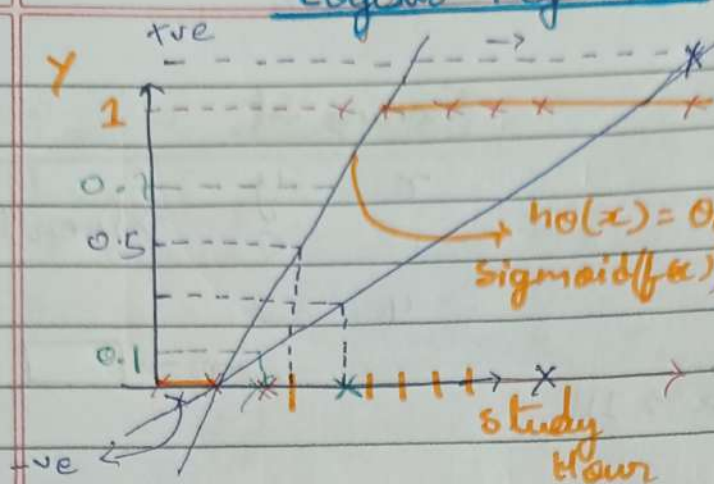 +ve
Y
1
0.5
hθ(x) = θ
sigmoid(fx)
0.1
study
Hour
-ve